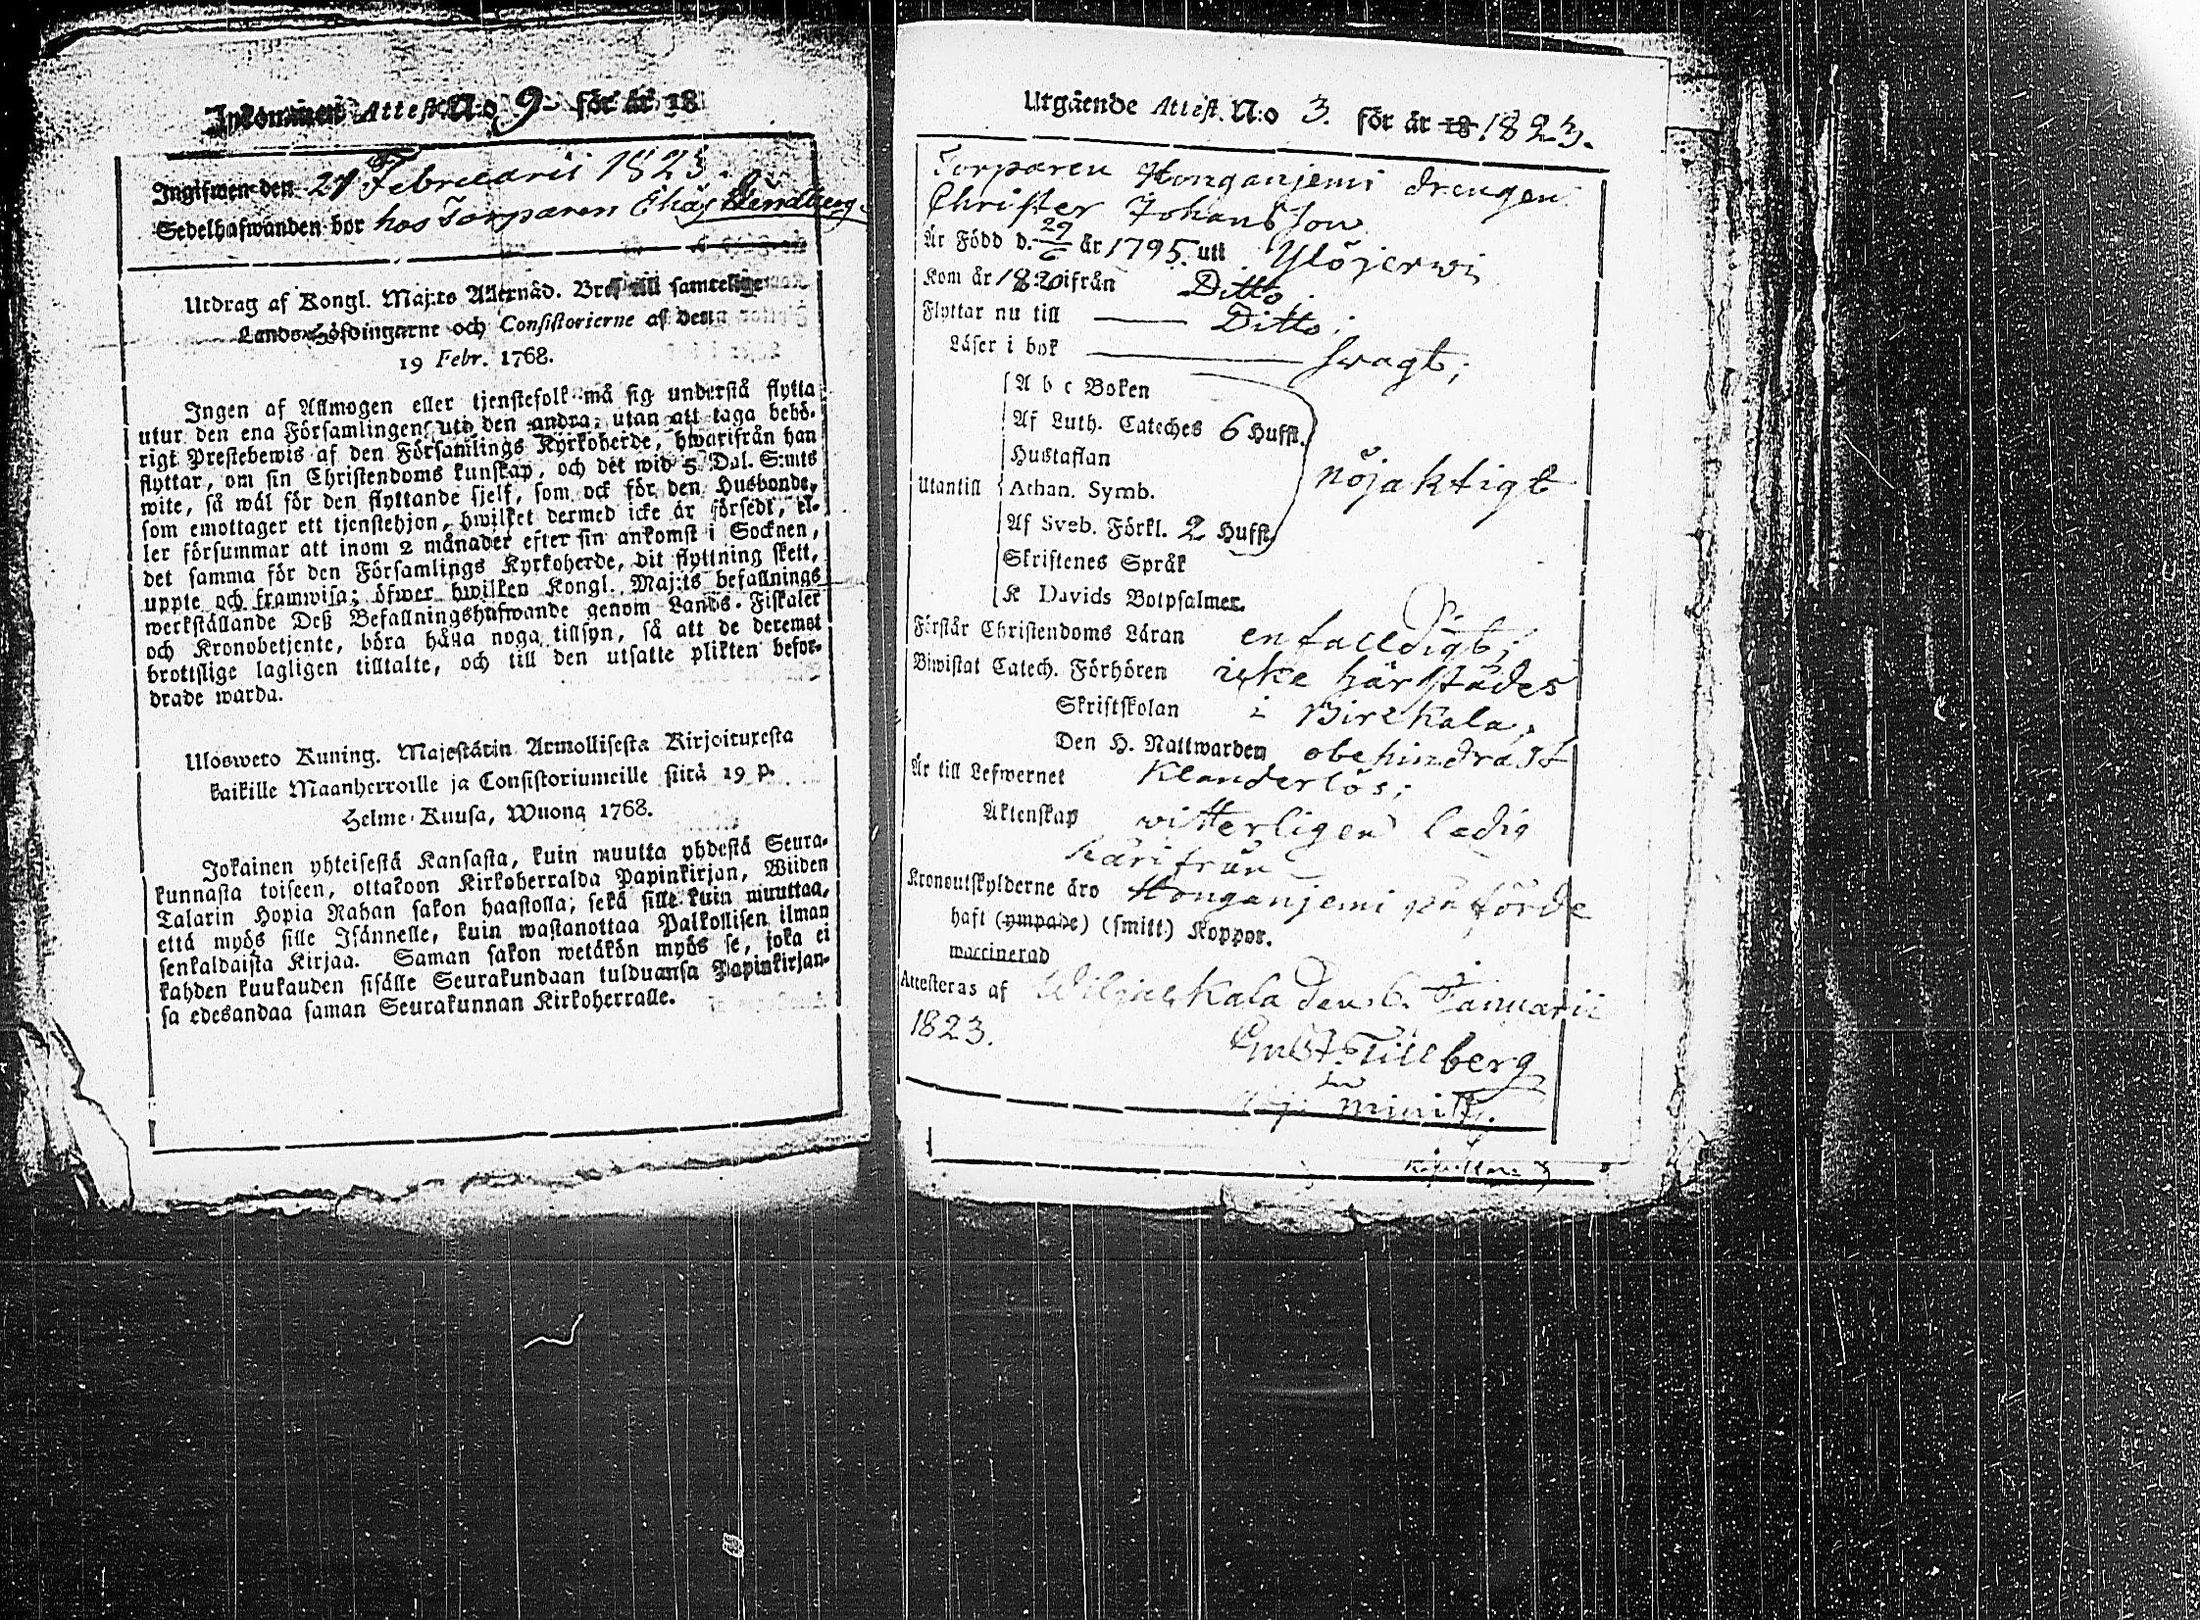 Inkommen Attest. N:o 9 för år 18
Ingifwen den 21 Februarii 1823.
Sedelhafwanden bor hos Torparen Elias
Utdrag af Kongl. Maj:ts Allernåd. Bref till samtelige
Lands-Höfdingarne och Consistorierne af den
19 Febr. 1768.
Ingen af Allmogen eller tjenstefolk må sig understå flytta
utur den ena Församlingen uti den andra, utan att taga behö-
rigt Prestebewis af den Församlings Kyrkoherde, hwarifrån han
flyttar, om sin Christendoms kunskap, och det wid 5 Dal. S:mts
wite, så wäl för den flyttande sjelf, som ock för den Husbonde,
som emottager ett tjenstehjon, hwilket dermed icke är försedt, el-
ler försummar att inom 2 månader efter sin ankomst i Socknen,
det samma för den Församlings Kyrkoherde, dit flyttning skett,
uppte och framwisa; öfwer hwilken Kongl. Maj:ts befallnings
werkställande Deß Befallningshafwande genom Lands-Fiskaler
och Kronobetjente, böra hålla noga tillsyn, så att de deremot
brottslige lagligen tilltalte, och till den utsatte plikten befor-
drade warda.
Ulosweto Kuning. Majestätin Armollisesta Kirjoituxesta
kaikille Maanherroille ja Consistoriumeille siitä 19 p.
Helme-Kuusa, Wuona 1768.
Jokainen yhteisestä Kansasta, kuin muutta yhdestä Seura-
kunnasta toiseen, ottakoon Kirkoherralda Papinkirjan, Wiiden
Talarin Hopia Rahan sakon haastolla; sekä sille kuin muuttaa,
että myös sille Isännelle, kuin wastanottaa Palkollisen ilman
senkaldaista Kirjaa. Saman sakon wetäkön myös se, joka ei
kahden kuukauden sisälle Seurakundaan tulduansa Papinkirjan-
sa edesandaa saman Seurakunnan Kirkoherralle.
Utgående Attest. N:o 3. för år 18 1823.
Torparen Honganjemi drengen
Christer Johansson
Är Född d. 29/6 år 1795. uti Ylöjerwi
Kom år 1820 ifrån Ditto
Flyttar nu till Ditto;
Läser i bok swagt;
A b c Boken
Af Luth. Cateches 6 Hufst.
Hustaflan
Utantill Athan. Symb. nöjaktigt
Af Sveb. Förkl. 2 Hufst.
Skriftenes Språk
K Davids Botpsalmer.
Förstår Christendoms Läran enfalldigt;
Biwistat Catech. Förhören icke härstädes
Skriftskolan i Birckala,
Den H. Nattwarden obehindradt
Är till Lefwernet klanderlös;
Äktenskap witterligen ledig
härifrån
Kronoutskylderne äro Honganjemi påförde
haft (ympade) (smitt) Koppor.
waccinerad
Attesteras af Wiljackala den 6. Januarii
1823. Tillberg